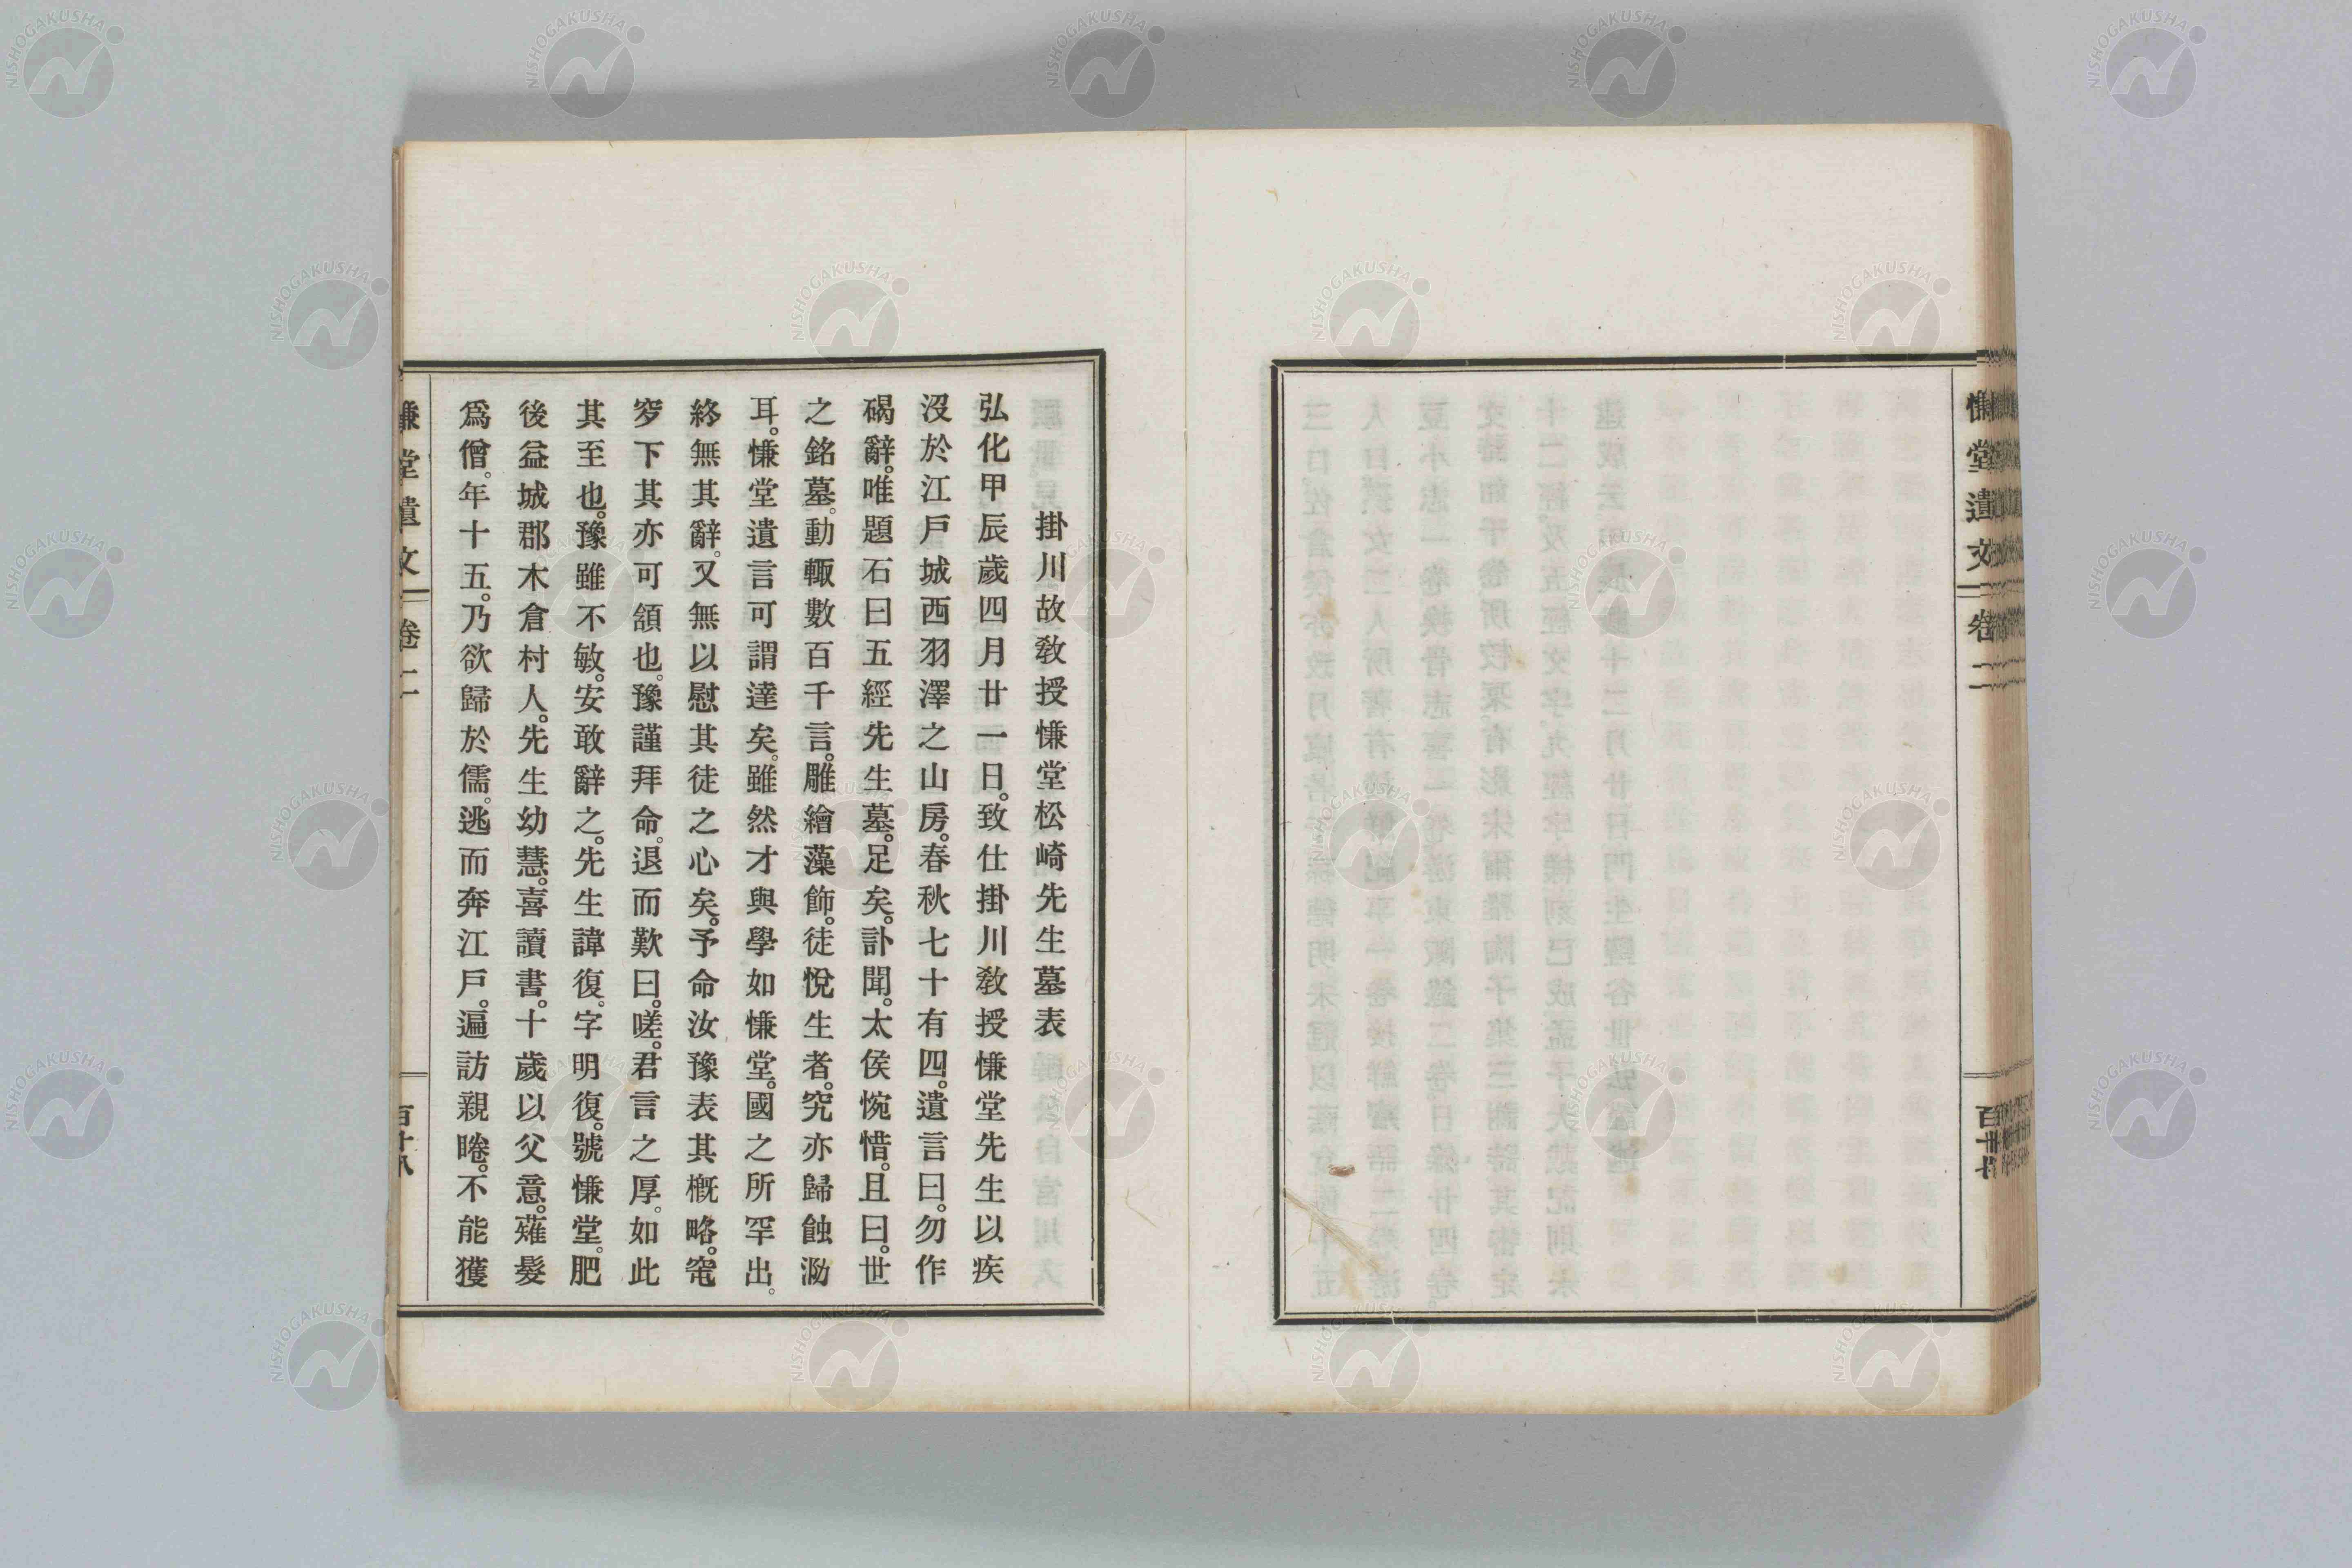 慊堂遺文
卷二
掛川故敎授慊堂松崎先生墓表
弘化甲辰歲四月廿一日。致仕掛川敎授慊堂先生以疾
沒於江戶城西羽澤之山房。春秋七十有四。遺言曰。勿作
碣辭。唯題石曰五經先生墓。足矣。訃聞。太侯惋惜。且曰。世
之銘墓。動輙數百千言。雕繪藻飾。徒悅生者。究亦歸蝕泐
耳。慊堂遺言可謂達矣。雖然才與學如慊堂。國之所罕出。
終無其辭。又無以慰其徒之心矣。予命汝豫表其槪略。窀
穸下其亦可頷也。豫謹拜命。退而歎曰。嗟。君言之厚。如此
其至也。豫雖不敏。安敢辭之。先生諱復。字明復。號慊堂。肥
後益城郡木倉村人。先生幼慧。喜讀書。十歲以父意。薙髮
爲僧。年十五。乃欲歸於儒。逃而奔江戶。遍訪親睠。不能獲
慊堂遺文
卷二
百廿八
NISHOGAKUSHA